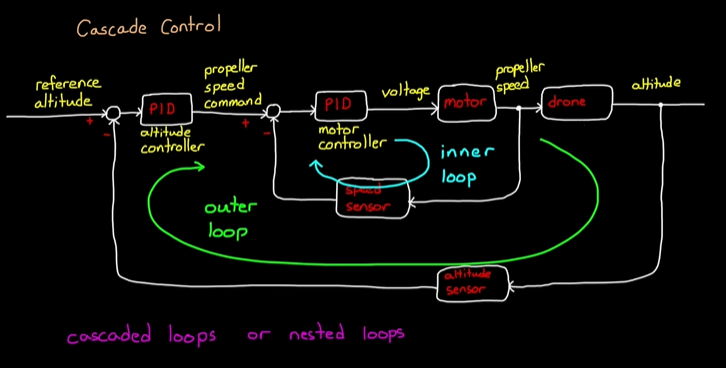 Cascade Control
reference
altitude
+
-
PID
altitude
controller
propeller
speed
command
+
-
PID
motor
controller
voltage
motor
propeller
speed
drone
altitude
inner
loop
speed
sensor
outer
loop
altitude
sensor
cascaded loops or nested loops